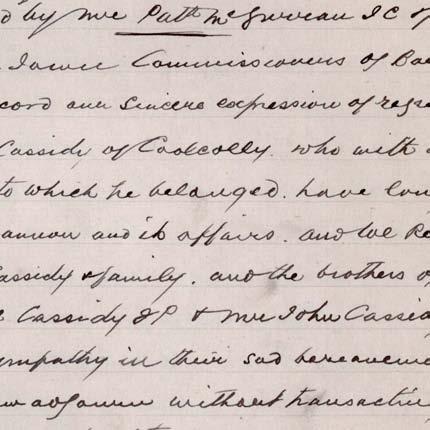 d by Mr Patk McGurran T C of
Town Commissioners of Ba
cord our sincere expression of reg
Cassidy of Coolcolly. who with
to which he belonged. have lon
annon and its affairs. and we Re
Cassidy & family. and the brothers o
Cassidy JP & Mr John Cassid
ympathy in their sad bereaveme
adjourn without transactin